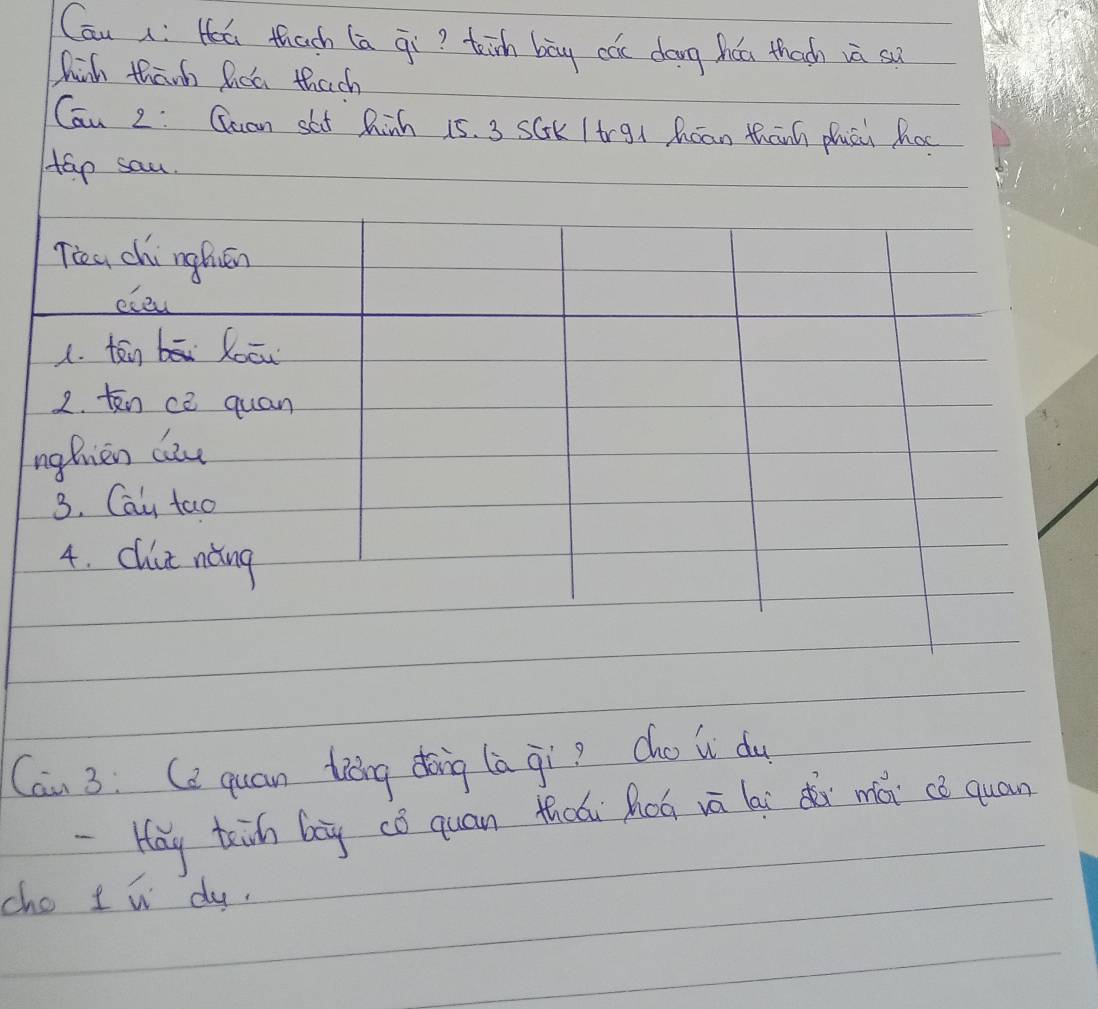 Câu 1: Hoá thạch là gì? trình bày các dạng hóa thạch và sự
hình thành hóa thạch
Câu 2: Quan sát hình 15.3 SGK/tr91 hoàn thành phiếu học
tập sau.
Tiêu chí nghiên
cứu
1. tên loài
2. tên cơ quan
nghiên cứu
3. Cấu tạo
4. chức năng
Câu 3: Cơ quan tương đồng là gì? Cho ví dụ
- Hãy trình bày cơ quan thoái hoá và lại đổi mới cơ quan
cho 1 ví dụ.